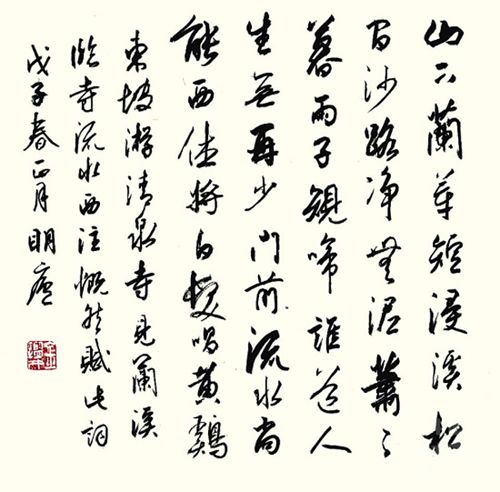 山下蘭芽短浸溪松
間沙路净無泥蕭々
暮雨子規啼誰道人
生無再少門前流水尚
能西休將白髮唱黄鷄
東坡游清泉寺見蘭溪
臨寺流水西注慨然賦此詞
戊子春正月明廬